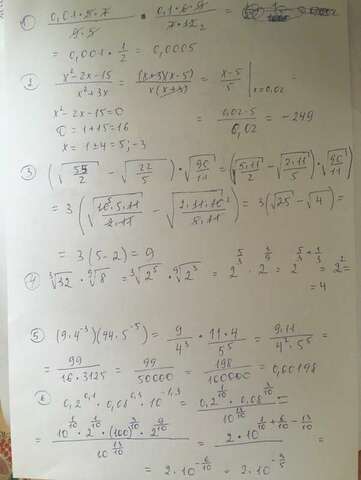 0,01·5·7 / 9·5 · 0,1·6·9 / 7·12 2
= 0,001 · 1/2 = 0,0005
2 x²-2x-15 / x²+3x = (x+3)(x-5) / x(x+3) = x-5 / 5 | x=0,02
x²-2x-15=0
D = 1+15=16
= 0,02-5 / 0,02 = -249
x = 1±4 = 5; -3
3 (√55/2 - √22/5) · √90/11 = (√5·11/2 - √2·11/5) · √90/11
= 3(√10·5·11 / 2·11 - √2·11·10 / 5·11) = 3(√25 - √4) =
= 3(5-2) = 9
4 ³√32 · ⁹√8 = ³√2⁵ · ⁹√2³ = 2^5/3 · 2^3/9 = 2^5/3+1/3 = 2² =
= 4
5 (9·4⁻³)(44·5⁻⁵) = 9/4³ · 11·4/5⁵ = 9·11 / 4²·5⁵ =
= 99 / 16·3125 = 99 / 50000 = 198 / 100000 = 0,00198
6 0,2^0,1 · 0,08^0,3 · 10^-1,3 = 0,2^1/10 · 0,08^3/10 / 10^13/10 =
= 2·10^1/10+6/10-13/10 =
= 2·10^-6/10 = 2·10^-3/5